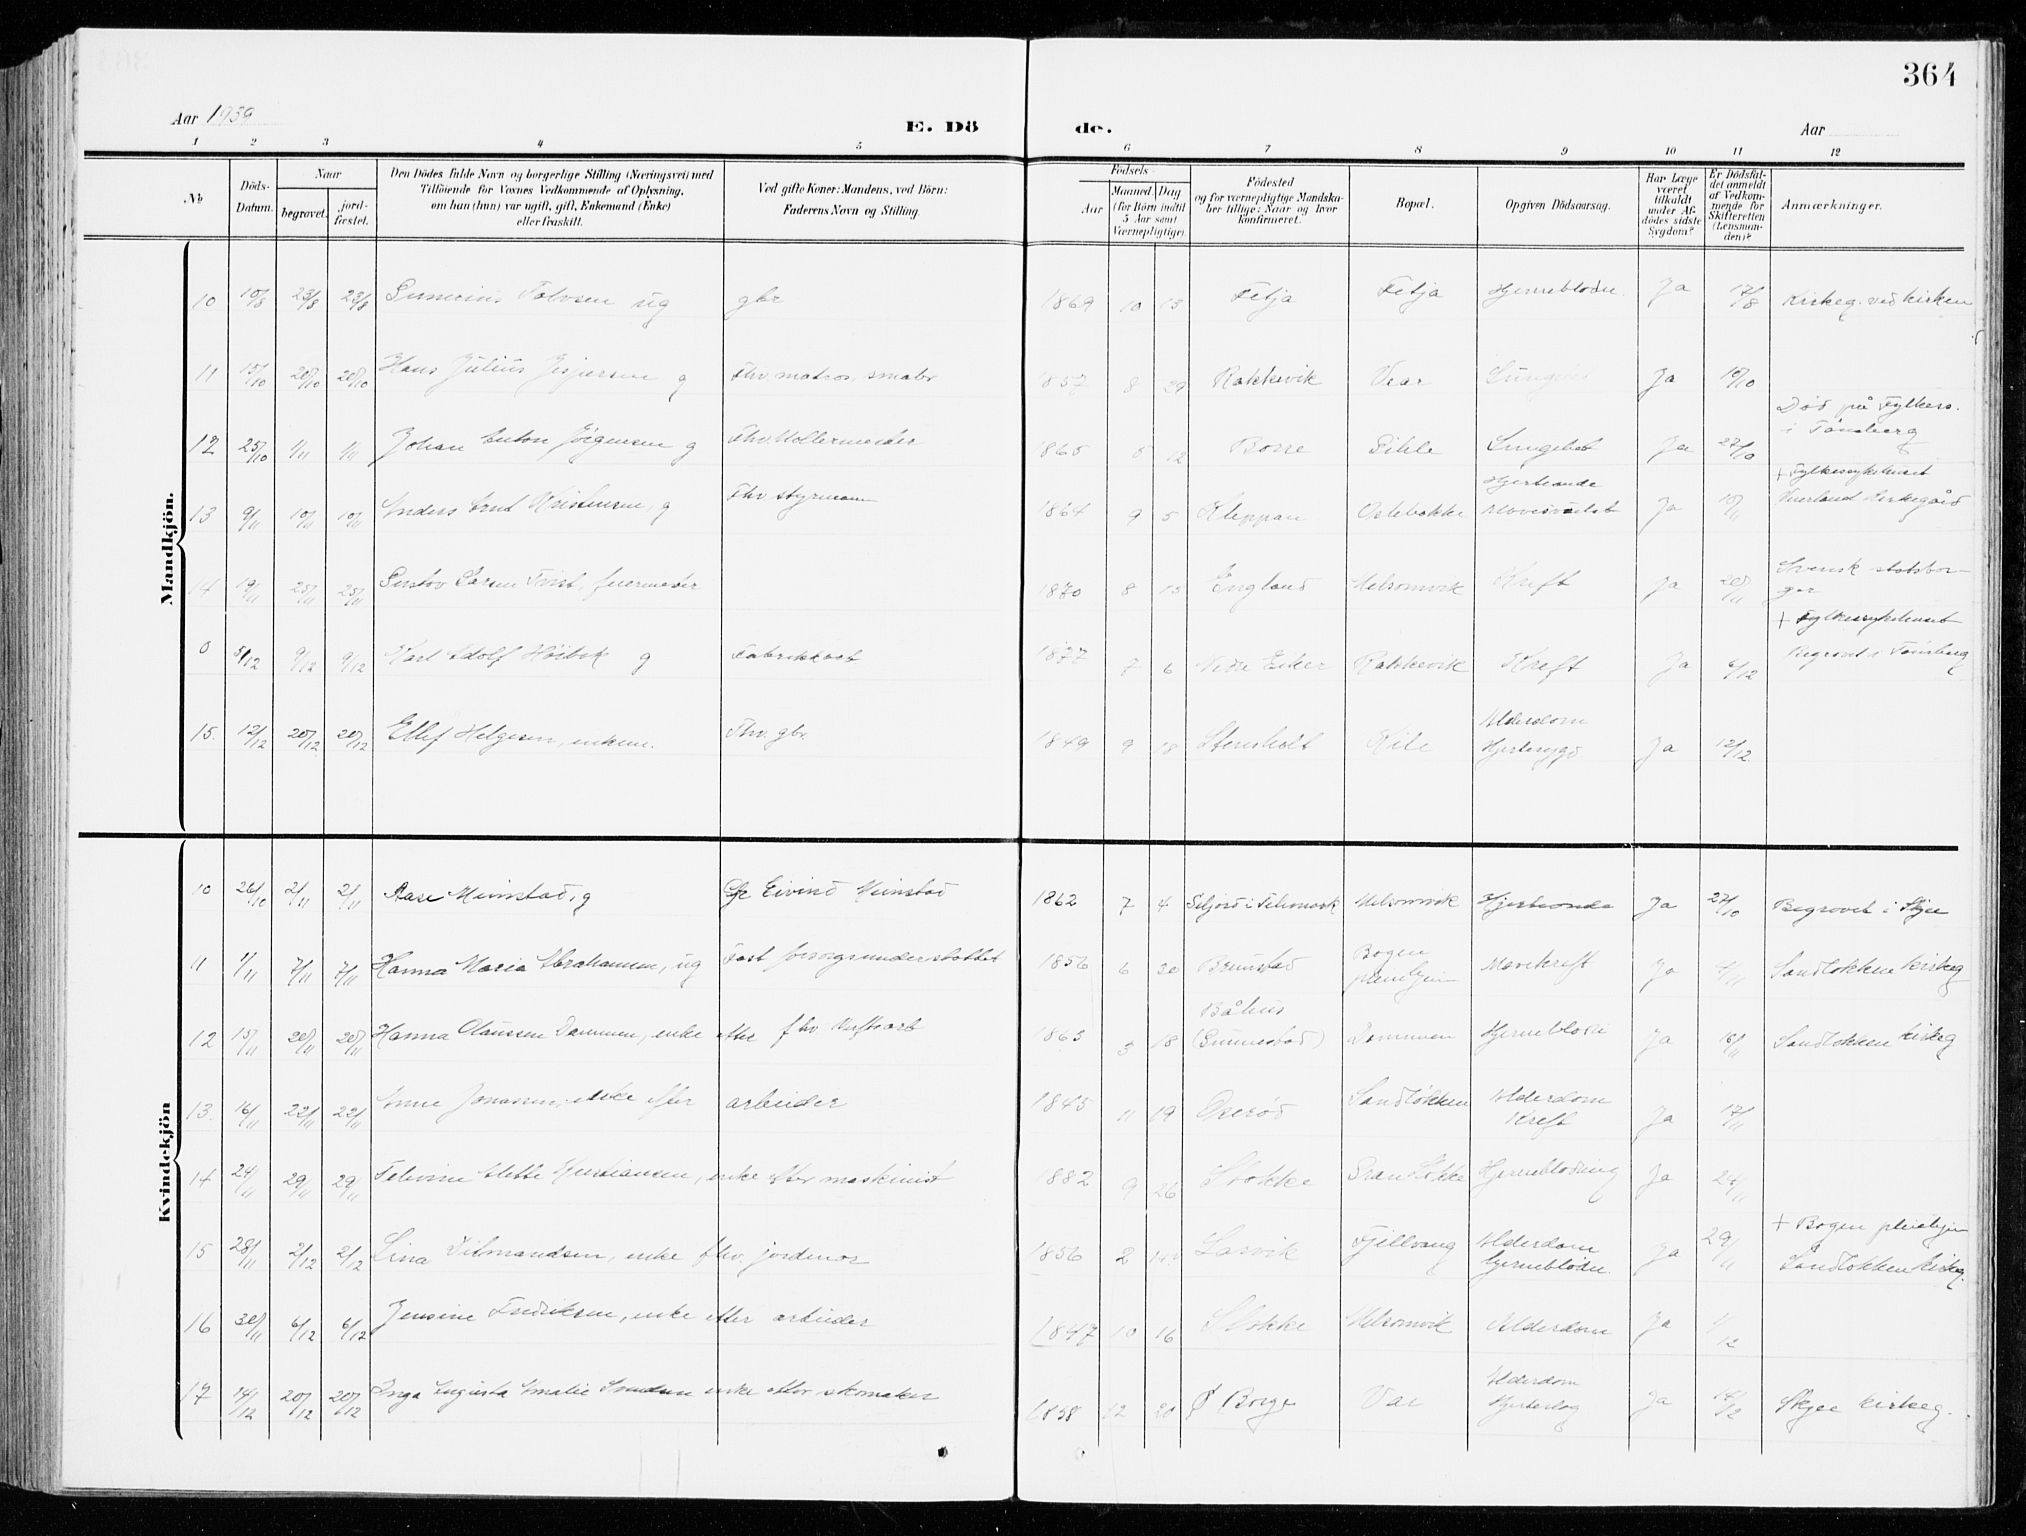 364
Aar 1939
E. Dö
de.
Aar
1 2 3 4 5 6 7 8 9 10 11 12
No
Döds-
Datum.
Naar
begravet.
jord-
fæstet.
Den Dödes fulde Navn og borgerlige Stilling (Næringsvei) med
Tilföiende for Voxnes Vedkommende af Oplysning,
om han (hun) var ugift, gift, Enkemand (Enke)
eller fraskilt.
Ved gifte Koner: Mandens, ved Börn:
Faderens Navn og Stilling.
Födsels-
Aar
Maaned
Dag
(for Börn indtil
5 Aar samt
Værnepligtige).
Födested
og for værnepligtige Mandska-
ber tillige: Naar og hvor
konfirmeret.
Bopæl.
Opgiven Dödsaarsag.
Har Læge
været
tilkaldt
under Af-
dödes sidste
Sygdom?
Er Dödsfal-
det anmeldt
af Vedkom-
mende for
Skifteretten
(Lensman-
den)?
Anmærkninger.
Mandkjön.
10 10/8 23/8 23/8 ug gbr 1869 10 13 Fetja Fetja Hjerneblødn. Ja 17/8 Kirkeg. ved kirken
11 15/10 20/10 20/10 Hans Julius Jespersen g Fhv. matros, småbr 1857 8 29 Rakkevik Vear Ja 19/10
Død på Fylkess.
i Tønsberg
12 25/10 1/11 1/11 Johan Anton Jörgensen g Fhv Møllermester 1865 5 12 Borre Lungebet Ja 27/10
+ Fylkessykehuset
13 9/11 10/11 10/11 Anders Kristensen, g Fhv styrmann 1864 9 5 Kleppan Ja 10/11 kirkegård
14 19/11 25/11 25/11 Gustav fyrmester 1870 8 15 England Melsomvik Kreft Ja 20/11 Svensk statsbor-
ger
+ Fylkessykehuset
0 5/12 9/12 9/12 Karl Adolf Høibek g Fabrikkarb 1877 7 6 Nedre Eiker Rakkevik Kreft Ja 6/12 Begravet i Tønsberg
15. 12/12 20/12 20/12 Ellef Helgesen, enkem. Fhv. gbr. 1849 9 18 Stensholt Kile Alderdom
Hjertesygd. Ja 12/12
Kvindekjön
10 26/10 2/11 2/11 Aase Mimstad, g Eivind Mimstad 1862 7 4 Seljord i Telemark Melsomvik Hjerteonde Ja 27/10 Begravet i Skjee
11 1/11 7/11 7/11 Hanna Maria Abrahamsen, ug Fast forsorgsunderstøttet 1856 6 30 Brunstad Bogen
pleiehjem Mavekreft Ja Sandløkken kirkeg
12 15/11 20/11 20/11 Hanna Claussen Dammen, enke etter fhv Verftsarb 1863 3 18 Båhus
(Gunnestad) Dammen Hjerneblødn Ja 16/11 Sandløkken kirkeg
13. 16/11 22/11 22/11 Anne Jonassen, enke efter arbeider 1845 11 19 Oserød Sandløkken Alderdom
Kreft Ja 17/11
14 24/11 29/11 29/11 Alette Kristiansen, enke etter maskinist 1882 9 26 Stokke Gran Stokke Hjerneblødning Ja 24/11
15 28/11 2/12 2/12 Lina Tilmandsen, enke fhv. jordmor 1856 2 Larvik Fjellvang Alderdom
hjerneblødn. Ja 29/11 + Bogen pleiehjem
Sandløkken kirkeg.
16 30/11 6/12 6/12 Jensine Fredriksen, enke etter arbeider 1847 10 16 Stokke Melsomvik Alderdom Ja 1/12
17 14/12 20/12 20/12 Inga Augusta Amalie enke etter skomaker 1858 12 20 Borge Vear Alderdom
Hjerteslag Ja 14/12 Skjee kirkeg.